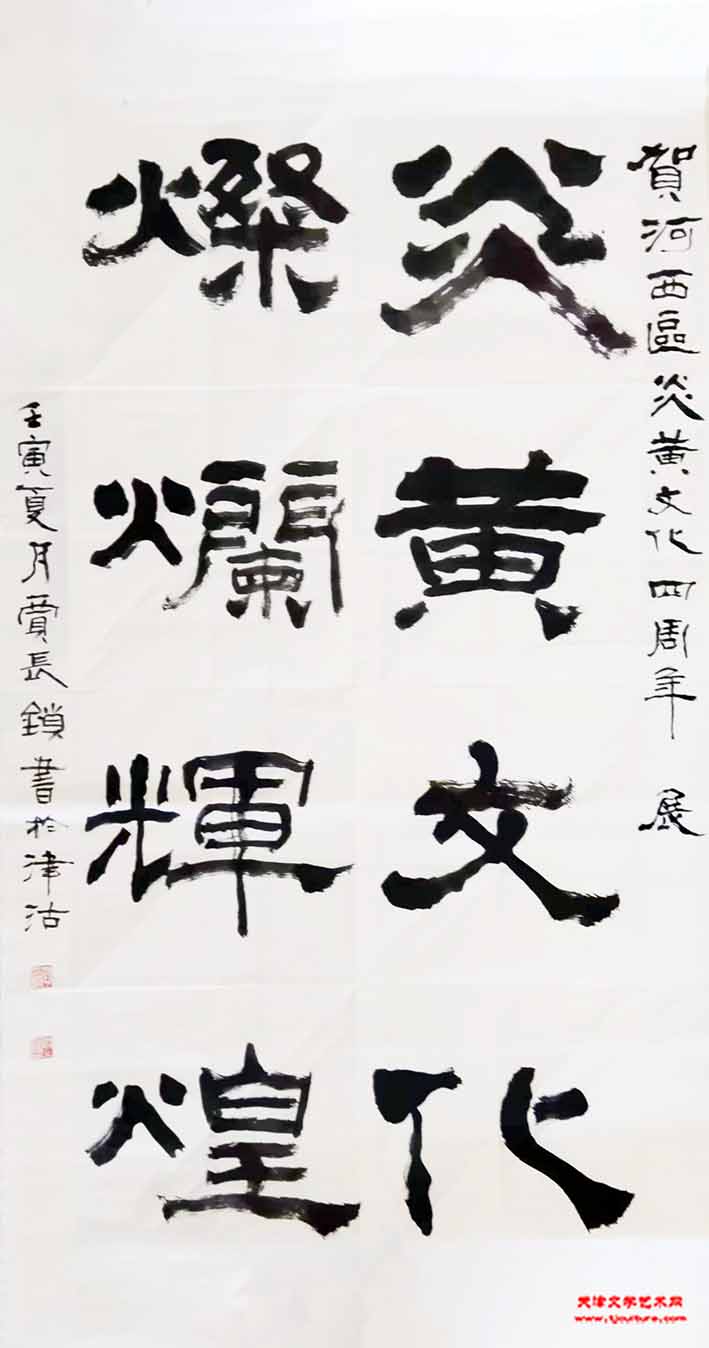 賀河西區炎黃文化四周年 展
炎黃文化
燦爛輝煌
壬寅夏月賈長鎖書於津沽
天津文学艺术网
www.tjculture.com